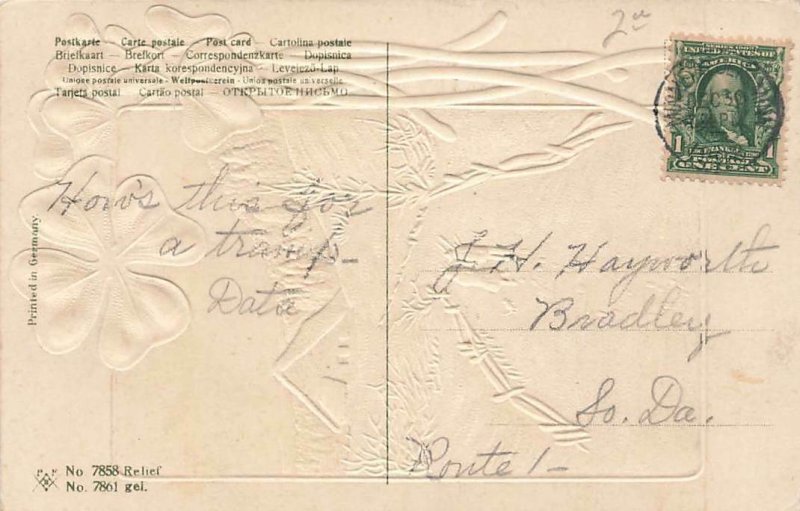 Postkarte – Carte postale – Post card – Cartolina postale
Briefkaart – Brefkort – Correspondenzkarte – Dopisnica
Dopisnice – Karta korespondencyjna – Levelező-Lap
Unione postale universale – Weltpostverein – Union postale universelle
Tarjeta postal – Cartão postal – ОТКРЫТОЕ ПИСЬМО
SERIES 1902
AMERICA
1 1
POSTAGE
ONE CENT
How's this for
a tramp –
Data
J. H. Hayworth
Bradley
So. Da.
Route 1 –
Printed in Germany
No 7858 Relief
No. 7861 gel.